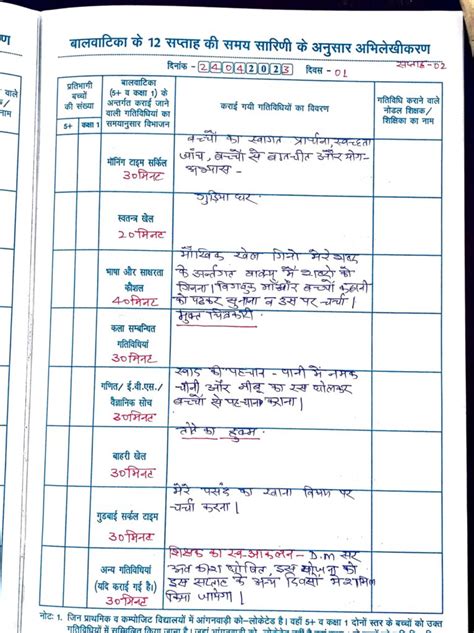 बालवाटिका के 12 सप्ताह की समय सारिणी के अनुसार अभिलेखीकरण
दिनांक - 24042023 दिवस - 01 सप्ताह-02
प्रतिभागी बच्चों की संख्या
5+ कक्षा 1
बालवाटिका (5+ व कक्षा 1) के अन्तर्गत कराई जाने वाली गतिविधियों का समयानुसार विभाजन
कराई गयी गतिविधियों का विवरण
गतिविधि कराने वाले नोडल शिक्षक/ शिक्षिका का नाम
मॉर्निंग टाइम सर्किल
30मिनट
बच्चों का स्वागत प्रार्थना, स्वच्छता
जाँच, बच्चों से बातचीत और योग-
अभ्यास -
स्वतन्त्र खेल
20मिनट
गुड़िया घर
भाषा और साक्षरता कौशल
40मिनट
मौखिक खेल गिनो मेरे शब्द
के अर्न्तगत वाक्य में शब्दों को
गिनना।
को पढ़कर सुनाना व इस पर चर्चा।
कला सम्बन्धित गतिविधियां
30मिनट
मुक्त चित्रकारी
गणित/ ई.वी.एस./ वैज्ञानिक सोच
30मिनट
स्वाद की पहचान - पानी में नमक
चीनी और नीबू का रस घोलकर
बच्चों से पहचान कराना।
बाहरी खेल
30मिनट
तोते का हुक्म
गुडबाई सर्कल टाइम
30मिनट
मेरे पसंद का खाना विषय पर
चर्चा करना।
अन्य गतिविधियां (यदि कराई गई है।)
30मिनट
शिक्षक का स्व-आकलन - D.M सर
इस सप्ताह के अन्य दिवसों में
किया जायेगा।
नोट: 1. जिन प्राथमिक व कम्पोजिट विद्यालयों में आंगनवाड़ी को-लोकेटेड है। वहाँ 5+ व कक्षा 1 दोनों स्तर के बच्चों को उक्त